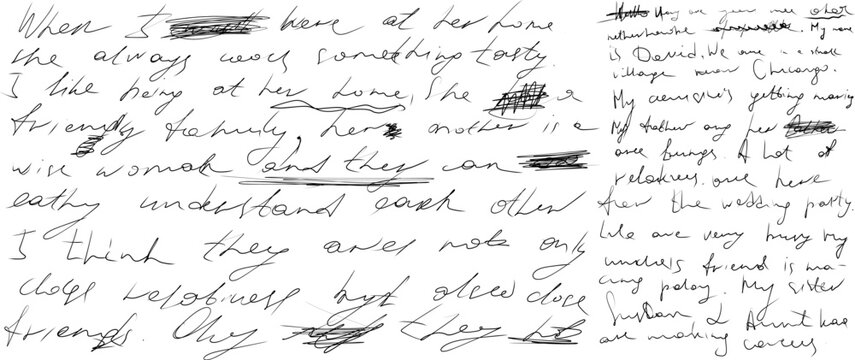 When I here at her home
she always cooks something tasty.
I like being at her home, She a
friendly family, her mother is a
wise woman and they can
eathy understand each other
I think they are not only
close relatiness but also close
friends. Ohy they
you are
My name
is David. We are in a small
village near Chicago.
My getting marry
My father any her
are buings. A lot of
relatives are here
from the wedding party.
We are very busy my
unckels friend is ma-
cing paloy. My sister
Susdan & Aunt
are making